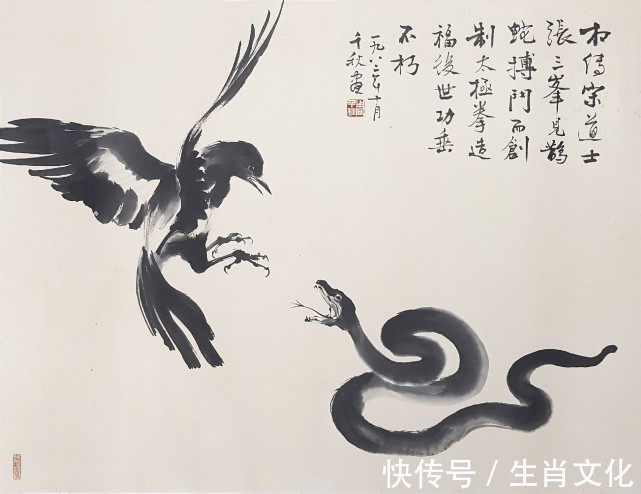 相傳宋道士
張三峯見鵲
蛇搏鬥而創
制太極拳造
福後世功垂
不朽
一九八二年十月
千秋畫
快传号 / 生肖文化